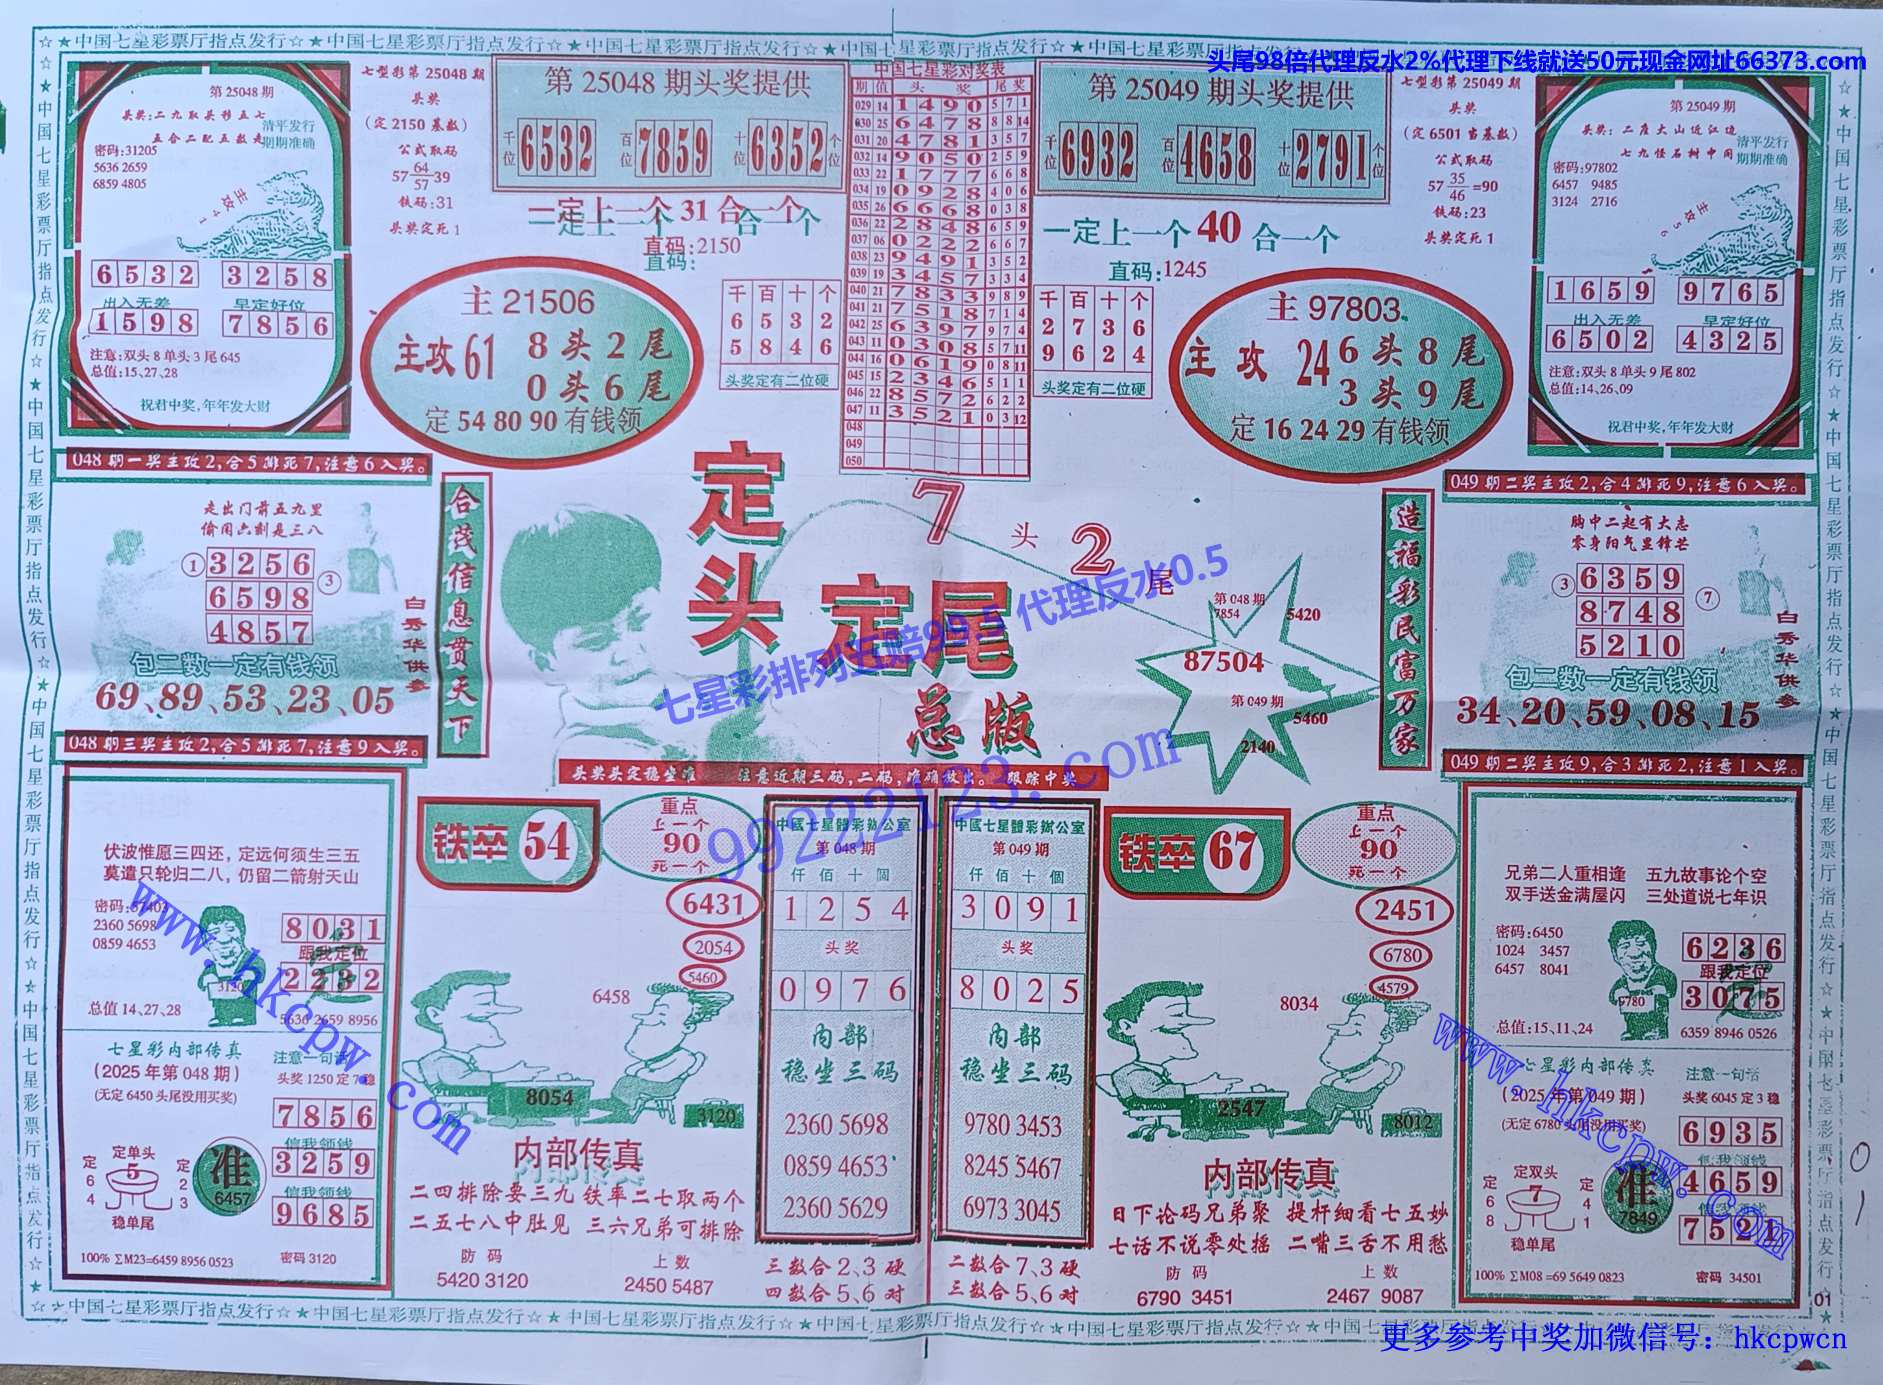 ☆★中国七星彩票厅指点发行☆★中国七星彩票厅指点发行☆★中国七星彩票厅指点发行☆★中国七星彩票厅指点发行☆★
头尾98倍代理反水2%代理下线就送50元现金网址66373.com
第 25048 期
头奖:二九取头移五七
五合二配五数是
清平发行
期期准确
密码:31205
5636 2659
6859 4805
主攻41
6532 3258
出入无差 早定好位
1598 7856
注意:双头8单头3尾645
总值:15、27、28
祝君中奖,年年发大财
七型彩第 25048 期
头奖
(定 2150 基数)
公式取码
57 64/57 39
铁码:31
头奖定死 1
第 25048 期头奖提供
千位 6532 百位 7859 十位 6352 个位
一定上一个 31 合一个
直码:2150
直码:
主 21506
主攻 61 8 头 2 尾
0 头 6 尾
定 54 80 90 有钱领
千 百 十 个
6 5 3 2
5 8 4 6
头奖定有二位硬
中国七星彩对奖表
期 值 头 奖 尾 奖
029 14 1 4 9 0 5 7 1
030 25 6 4 7 8 8 8 14
031 20 4 7 8 1 3 5 7
032 14 9 0 5 0 2 5 9
033 22 1 7 7 7 6 6 8
034 19 0 9 2 8 4 0 6
035 26 6 6 6 8 0 3 8
036 22 2 8 4 8 6 5 9
037 06 0 2 2 2 6 6 7
038 23 9 4 9 1 3 5 2
039 19 3 4 5 7 3 3 4
040 21 7 8 3 3 9 8 9
041 21 7 5 1 8 7 1 4
042 25 6 3 9 7 9 7 4
043 11 0 3 0 8 5 7 11
044 16 0 6 1 9 0 8 11
045 15 2 3 4 6 5 1 1
046 22 8 5 7 2 6 2 2
047 11 3 5 2 1 0 3 12
048
049
050
第 25049 期头奖提供
千位 6932 百位 4658 十位 2791 个位
一定上一个 40 合一个
直码:1245
千 百 十 个
2 7 3 6
9 6 2 4
头奖定有二位硬
主 97803
主攻 24 6 头 8 尾
3 头 9 尾
定 16 24 29 有钱领
七型彩第 25049 期
头奖
(定 6501 当基数)
公式取码
57 35/46 =90
铁码:23
头奖定死 1
第 25049 期
头奖:二度大山近江边
七九怪石树中间
清平发行
期期准确
密码:97802
6457 9485
3124 2716
主攻56
1659 9765
出入无差 早定好位
6502 4325
注意:双头8单头9尾802
总值:14、26、09
祝君中奖,年年发大财
048 期一奖主攻2,合5排死7,注意6入奖。
走出门前五九里
偷闲六割是三八
① 3256 ③
6598
4857
包二数一定有钱领
69、89、53、23、05
白秀华供参
合茂信息贯天下
定头
定尾
总版
7 头 2 尾
七星彩排列五赔99.5 代理反水0.5
第 048 期
7854
5420
87504
第 049 期
5460
2140
造福彩民富万家
049 期二奖主攻2,合4排死9,注意6入奖。
胸中二起有大志
零身阳气显锋芒
③ 6359 ⑦
8748
5210
包二数一定有钱领
34、20、59、08、15
白秀华供参
048 期三奖主攻2,合5排死7,注意9入奖。
头奖头定稳坐准 注意近期三码,二码,准确放出。 跟踪中奖
049 期二奖主攻9,合3排死2,注意1入奖。
99222123.com
伏波惟愿三四还，定远何须生三五
莫遣只轮归二八，仍留二箭射天山
密码:57403
2360 5698
0859 4653
3120
8031
跟我定位
2232
总值 14、27、28
5636 2659 8956
www.hkcpw.com
七星彩内部传真
(2025 年第 048 期)
(无定 6450 头尾没用买奖)
注意一句话
头奖 1250 定 7 稳
7856
信我领钱
3259
信我领钱
9685
定 6 4
定单头
5
稳单尾
定 2 3
准
6457
100% ∑M23=6459 8956 0523 密码 3120
铁卒 54
重点
上一个
90
死一个
6431
2054
5460
6458
8054
3120
内部传真
二四排除要三九 铁率二七取两个
二五七八中肚见 三六兄弟可排除
防 码 上 数
5420 3120 2450 5487
中國七星體彩辦公室
第 048 期
仟 佰 十 個
1 2 5 4
头 奖
0 9 7 6
内部
稳坐三码
2360 5698
0859 4653
2360 5629
三数合 2、3 硬
四数合 5、6 对
中國七星體彩辦公室
第 049 期
仟 佰 十 個
3 0 9 1
头 奖
8 0 2 5
内部
稳坐三码
9780 3453
8245 5467
6973 3045
二数合 7、3 硬
三数合 5、6 对
铁卒 67
重点
上一个
90
死一个
2451
6780
4579
8034
2547
8012
内部传真
日下论码兄弟聚 提杆细看七五妙
七话不说零处摇 二嘴三舌不用愁
防 码 上 数
6790 3451 2467 9087
兄弟二人重相逢 五九故事论个空
双手送金满屋闪 三处道说七年识
密码:6450
1024 3457
6457 8041
9780
6236
跟我定位
3075
总值:15、11、24
6359 8946 0526
www.hkcpw.com
七星彩内部传真
(2025 年第 049 期)
(无定 6780 头尾没用买奖)
注意一句话
头奖 6045 定 3 稳
6935
信我领钱
4659
7521
定 6 8
定双头
7
稳单尾
定 4 1
准
7849
100% ∑M08=69 5649 0823 密码 34501
01
☆★中国七星彩票厅指点发行☆★中国七星彩票厅指点发行☆★中国七星彩票厅指点发行☆★中国七星彩票厅指点发行☆★
更多参考中奖加微信号：hkcpwcn